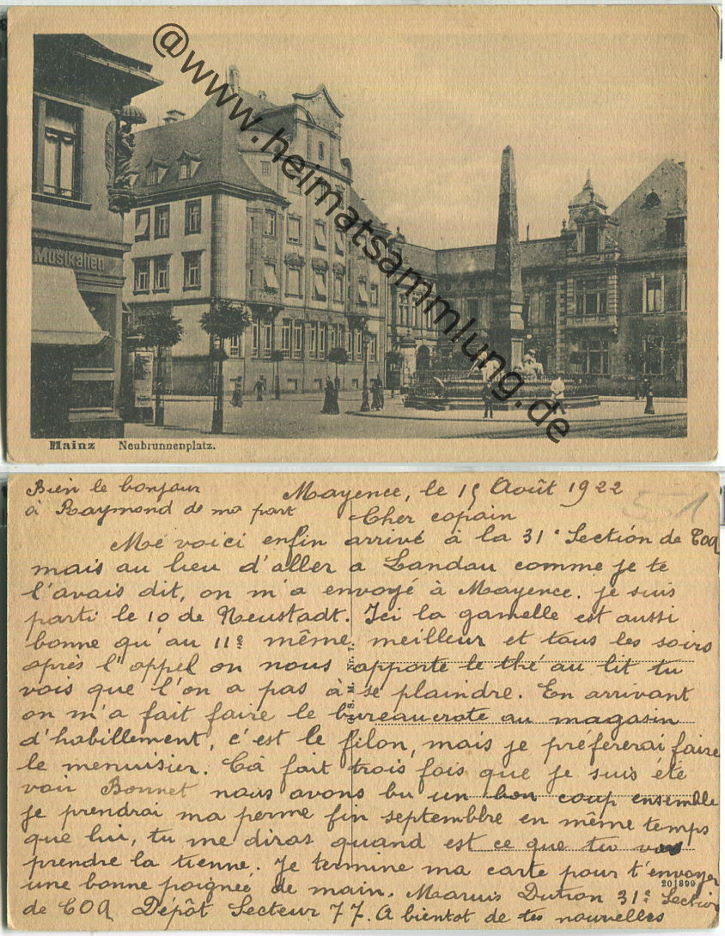 @www.heimatsammlung.de
Musikalien
Mainz Neubrunnenplatz.
Bien le bonjour
à Raymond de ma part
551
Mayence, le 15 Août 1922
Cher copain
Me voici enfin arrivé à la 31e Section de COA
mais au lieu d'aller a Landau comme je te
l'avais dit, on m'a envoyé à Mayence. je suis
parti le 10 de Neustadt. Ici la gamelle est aussi
bonne qu'au 11e même meilleur et tous les soirs
après l'appel on nous apporte le thé au lit tu
vois que l'on a pas à se plaindre. En arrivant
on m'a fait faire le bureaucrate au magasin
d'habillement, c'est le filon, mais je préfèrerai faire
le menuisier. Cà fait trois fois que je suis été
voir Bonnet nous avons bu un bon coup ensemble
je prendrai ma perme fin septembbre en même temps
que lui, tu me diras quand est ce que tu vas
prendre la tienne. Je termine ma carte pour t'envoyer
une bonne poignée de main. Marius Dutron 31e Section
de COA Dépôt Secteur 77. A bientot de tes nouvelles
201899